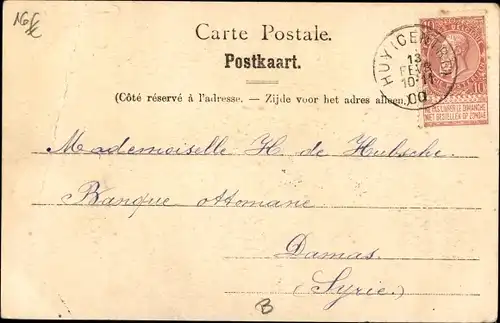 Carte Postale.
Postkaart.
(Côté réservé à l'adresse. — Zijde voor het adres alleen.)
HUY (CENTRE)
13
FEVR
10-11
00
10 10
NE PAS LIVRER LE DIMANCHE
NIET BESTELLEN OP ZONDAG
Mademoiselle H. de Hübsche.
Banque ottomane
Damas.
(Syrie.)
B